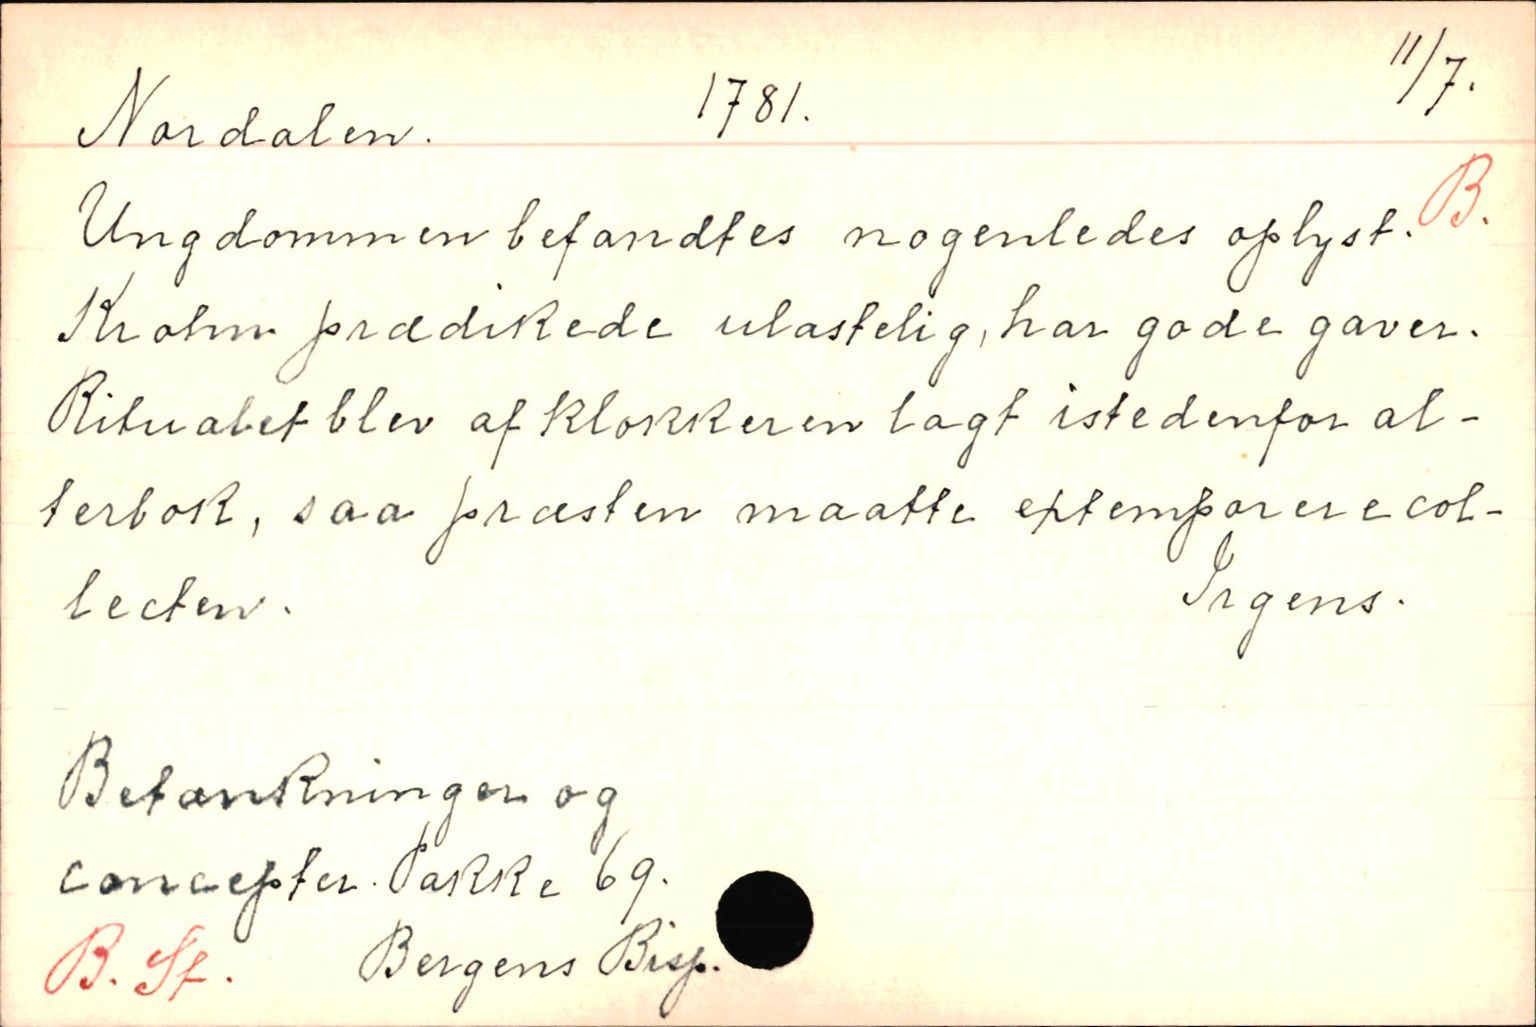 Nordalen. 1781. 11/7.
Ungdommen befandtes nogenledes oplyst. B.
Krohn prædikede ulastelig, har gode gaver.
Ritualet blev af klokkeren lagt istedenfor al-
terbok, saa præsten maatte extemporere col-
lecten. Irgens.
Betænkninger og
concepter. Pakke 69.
B. St. Bergens Bisp.